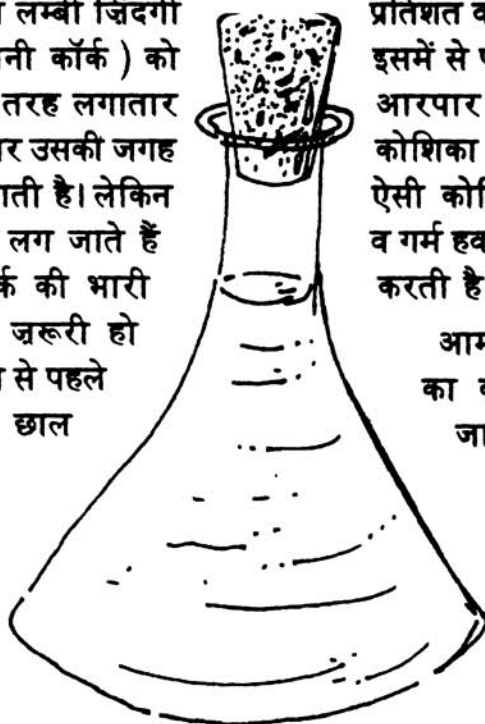 लम्बी ज़िदगी
नी कॉर्क ) को
तरह लगातार
र उसकी जगह
ती है। लेकिन
लग जाते हैं
की भारी
ज़रूरी हो
से पहले
छाल
प्रतिशत
इसमें से
आरपार
कोशिका
ऐसी कोशि
व गर्म हव
करती है
आम
का
जा